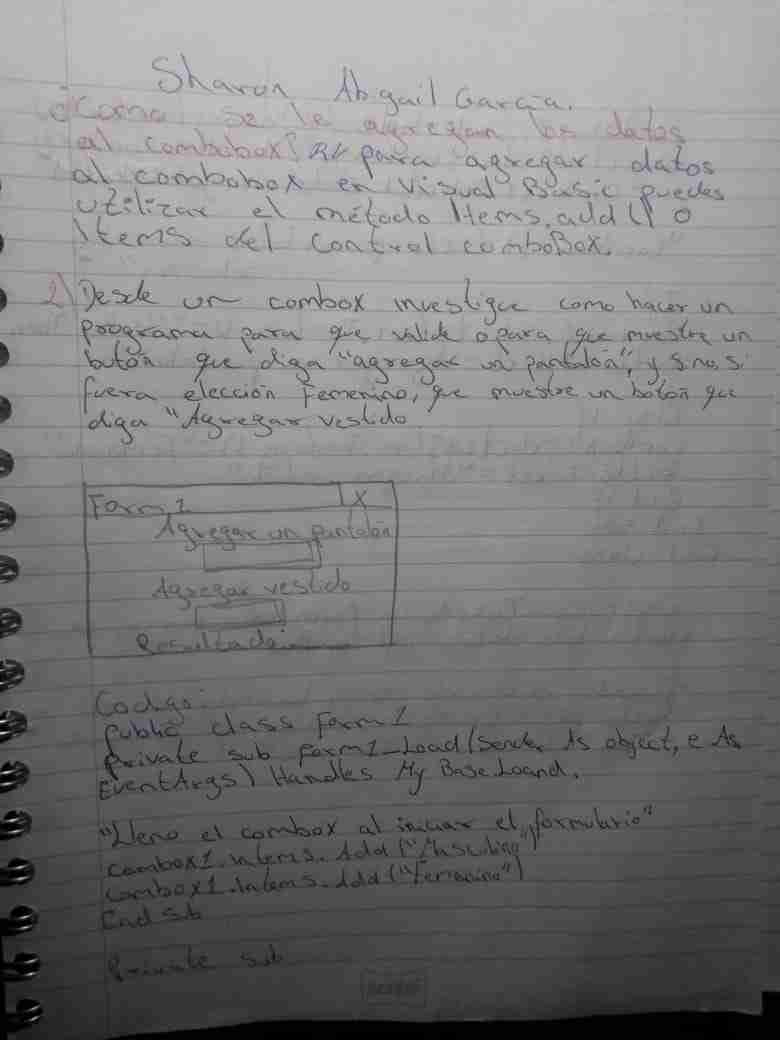 Sharon Abgail García.
¿Como se le agregan los datos
al combobox? R// para agregar datos
al combobox en visual Basic puedes
utilizar el método Items.add() o
Items del Control comboBox.
2) Desde un combox investigue como hacer un
programa para que valide o para que muestre un
botón que diga "agregar un pantalón", y sino, si
fuera elección Femenino, que muestre un botón que
diga "Agregar vestido
Form 1 X
Agregar un pantalón
Agregar vestido
Resultado:
Codigo:
Public class Form 1
private sub form1_Load(Sender As object, e As
EventArgs) Handles My Base.Loand.
"Lleno el combox al iniciar el formulario"
combox1.Intems.Add("Masculino"
combox1.Intems.Add("femenino")
End Sub
Private sub